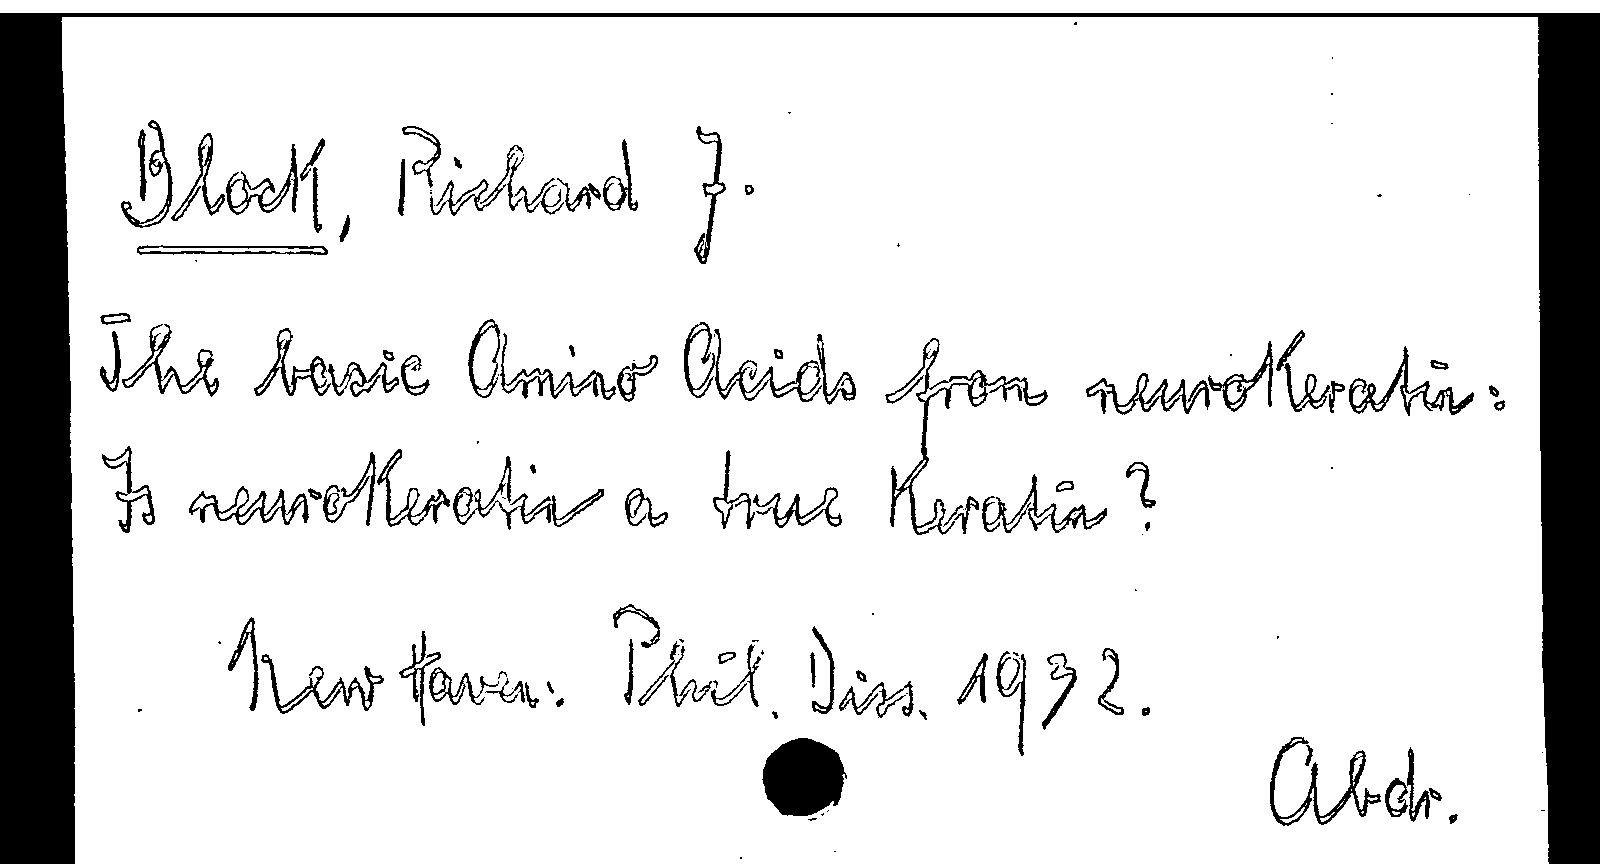 Block, Richard J.
The basic Amino Acids from neurokeratin:
Is neurokeratin a true Keratin?
New Haven: Phil. Diss. 1932.
Abdr.